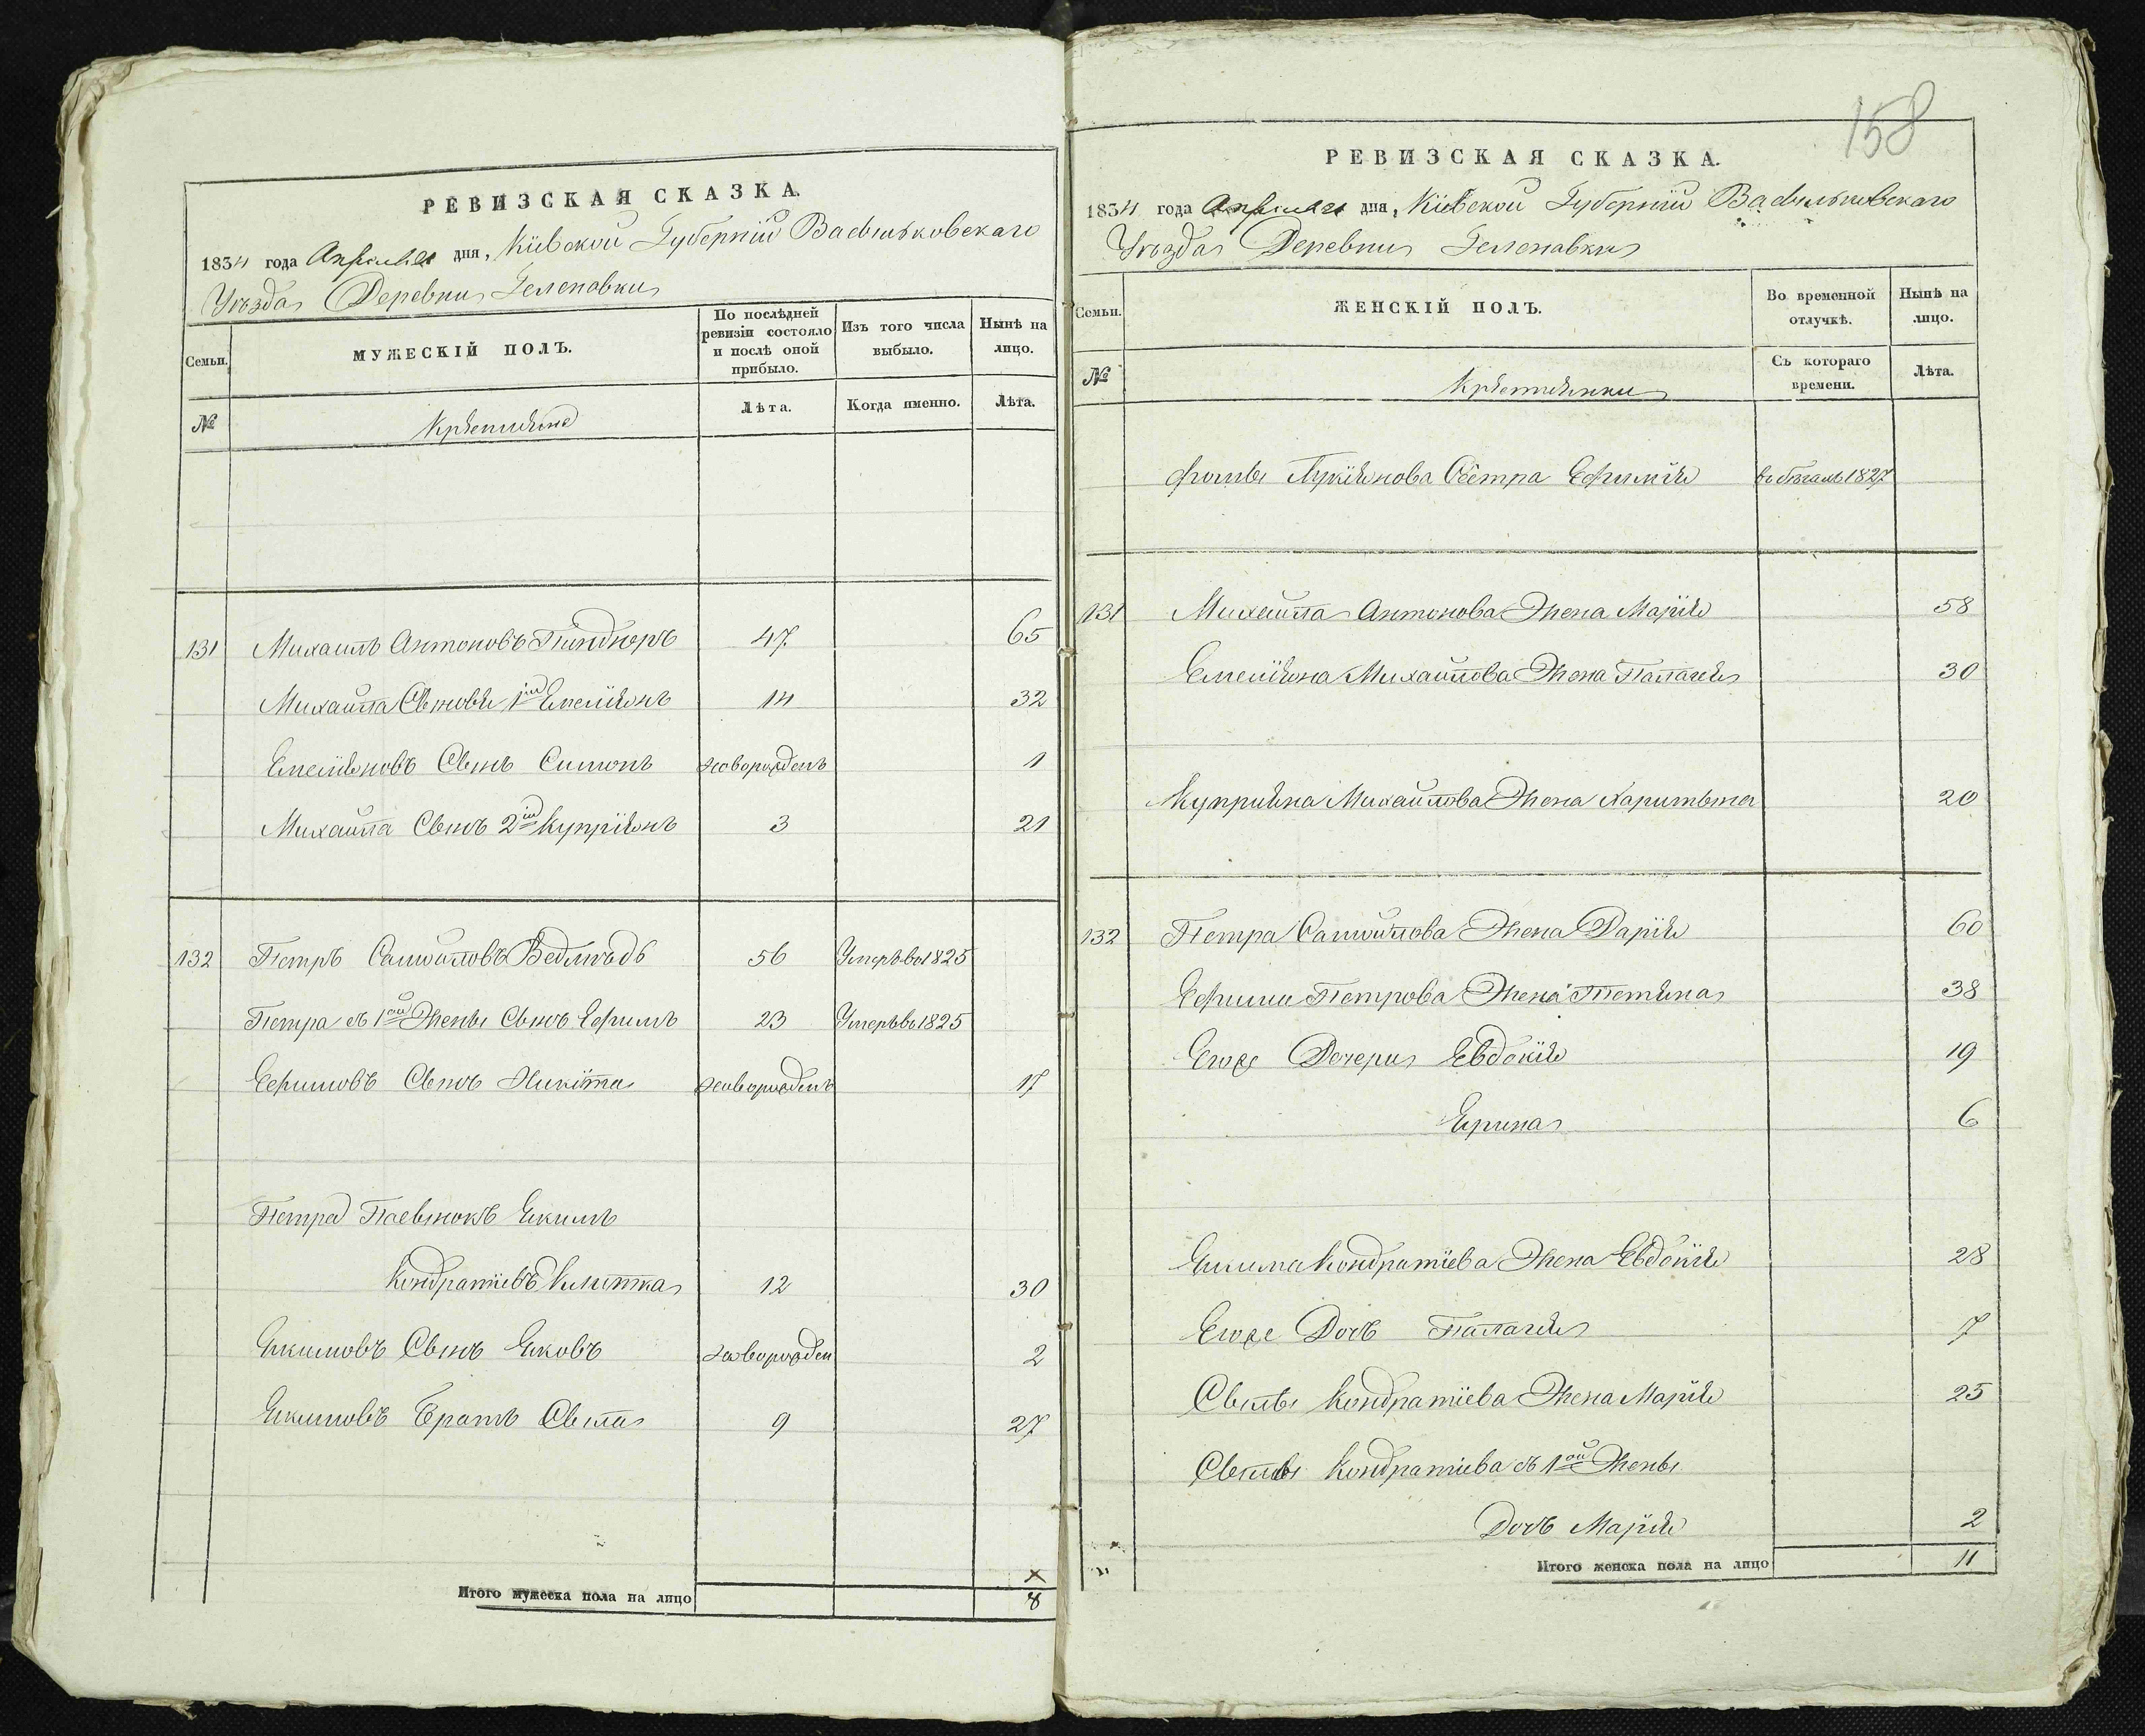 РЕВИЗСКАЯ СКАЗКА.
1834 года Апреля дня, Кіевской Губерніи Васильковскаго
Уѣзда Деревни Геленовки
Семьи.
МУЖЕСКІЙ ПОЛЪ.
По послѣдней ревизіи состояло и послѣ оной прибыло.
Изъ того числа выбыло.
Нынѣ на лицо.
№
Крестяне
Лѣта.
Когда именно.
Лѣта.
131 Михаилъ Антоновъ 47 65
Михайла Сыновя 1й Емеліянъ 14 32
Емеліяновъ Сынъ Симонъ новорожденъ 1
Михайла Сынъ 2й Купріянъ 3 21
132 Петръ Самойловъ Ведмѣдь 56 Умеръ въ 1825
Петра съ 1ой Жены Сынъ Ефимъ 23 Умеръ въ 1825
Ефимовъ Сынъ Никита новорожденъ 17
Петра Пасынокъ Якимъ
Кондратіевъ 12 30
Якимовъ Сынъ Яковъ новорожден 2
Якимовъ Братъ Сыла 9 27
Итого мужеска пола на лицо 8
158
РЕВИЗСКАЯ СКАЗКА.
1834 года Апреля дня, Кіевской Губерніи Васильковскаго
Уѣзда Деревни Геленовки
Семьи.
ЖЕНСКІЙ ПОЛЪ.
Во временной отлучкѣ.
Нынѣ на лицо.
№
Крестянки
Съ котораго времени.
Лѣта.
Фомы Лукіянова Сестра Ефимія въ бѣгахъ 1827
131 Михайла Антонова Жена Марія 58
Емеліяна Михайлова Жена Палагея 30
Купріяна Михайлова Жена Харитына 20
132 Петра Самойлова Жена Дарія 60
Ефима Петрова Жена Тетяна 38
Егоже Дочери Евдокія 19
Ярина 6
Якима Кондратіева Жена Евдокія 28
Егоже Дочь Палагея 7
Сылы Кондратіева Жена Марія 25
Сылы Кондратіева съ 1ой Жены
Дочь Марія 2
Итого женска пола на лицо 11